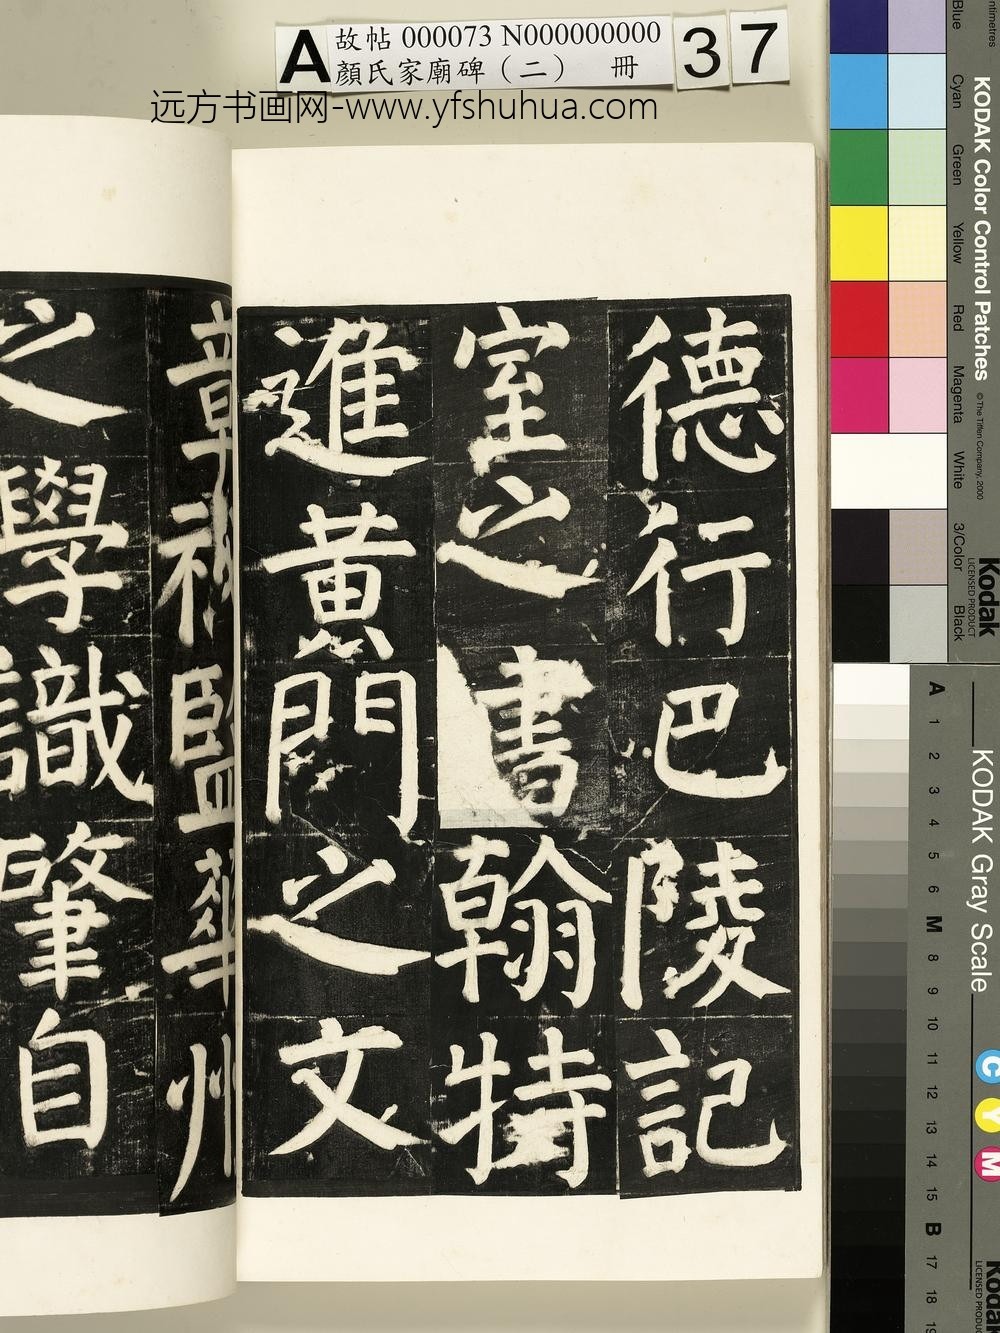 A
故帖 000073 N000000000
顏氏家廟碑（二） 冊
37
远方书画网-www.yfshuhua.com
德行巴陵記
室之書翰特
進黃門之文
監華州
之學識肇自
KODAK Color Control Patches
© The Tiffen Company, 2000
Kodak
LICENSED PRODUCT
Blue
Cyan
Green
Yellow
Red
Magenta
White
3/Color
Black
KODAK Gray Scale
A 1 2 3 4 5 6 M 8 9 10 11 12 13 14 15 B 17 18
C
Y
M
Kodak
LICENSED PRODUCT